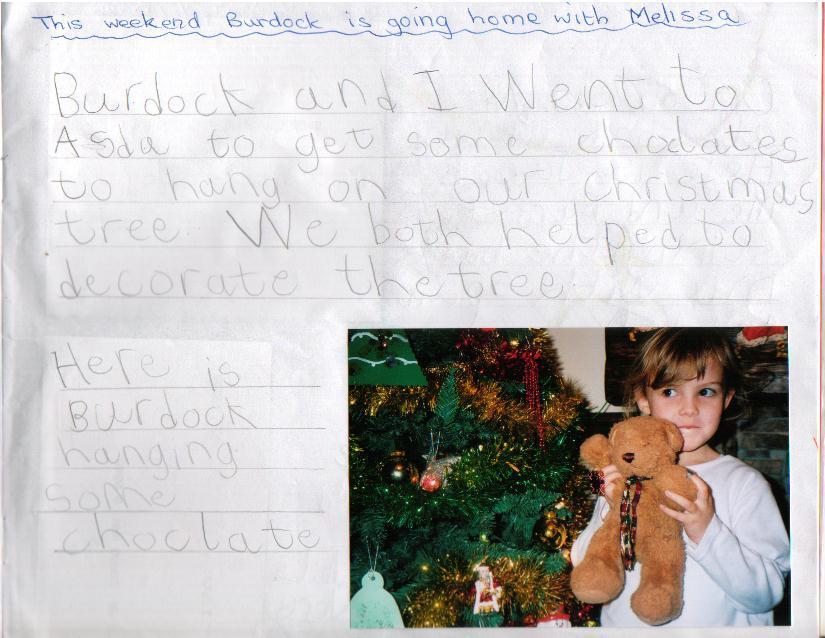 This weekend Burdock is going home with Melissa
Burdock and I Went to
Asda to get some choclates
to hang on our christmas
tree. We both helped to
decorate the tree.
Here is
Burdock
hanging
some
choclate